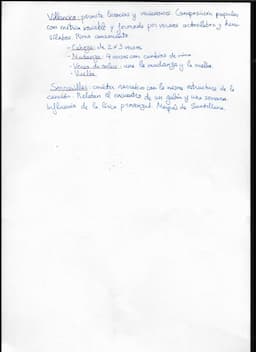 Villancico: permite licencias y variaciones. Composición popular
con métrica variable y formada por versos octosílabos y hexa-
sílabos. Rima consonante
- Cabeza: de 2 o 3 versos
- Mudanza: 4 versos con cambios de rima
- Verso de enlace: une la mudanza y la vuelta.
- Vuelta
Serranillas: carácter narrativo con la misma estructura de la
canción. Relatan el encuentro de un galán y una serrana.
Influencia de la lírica provenzal. Marqués de Santillana.